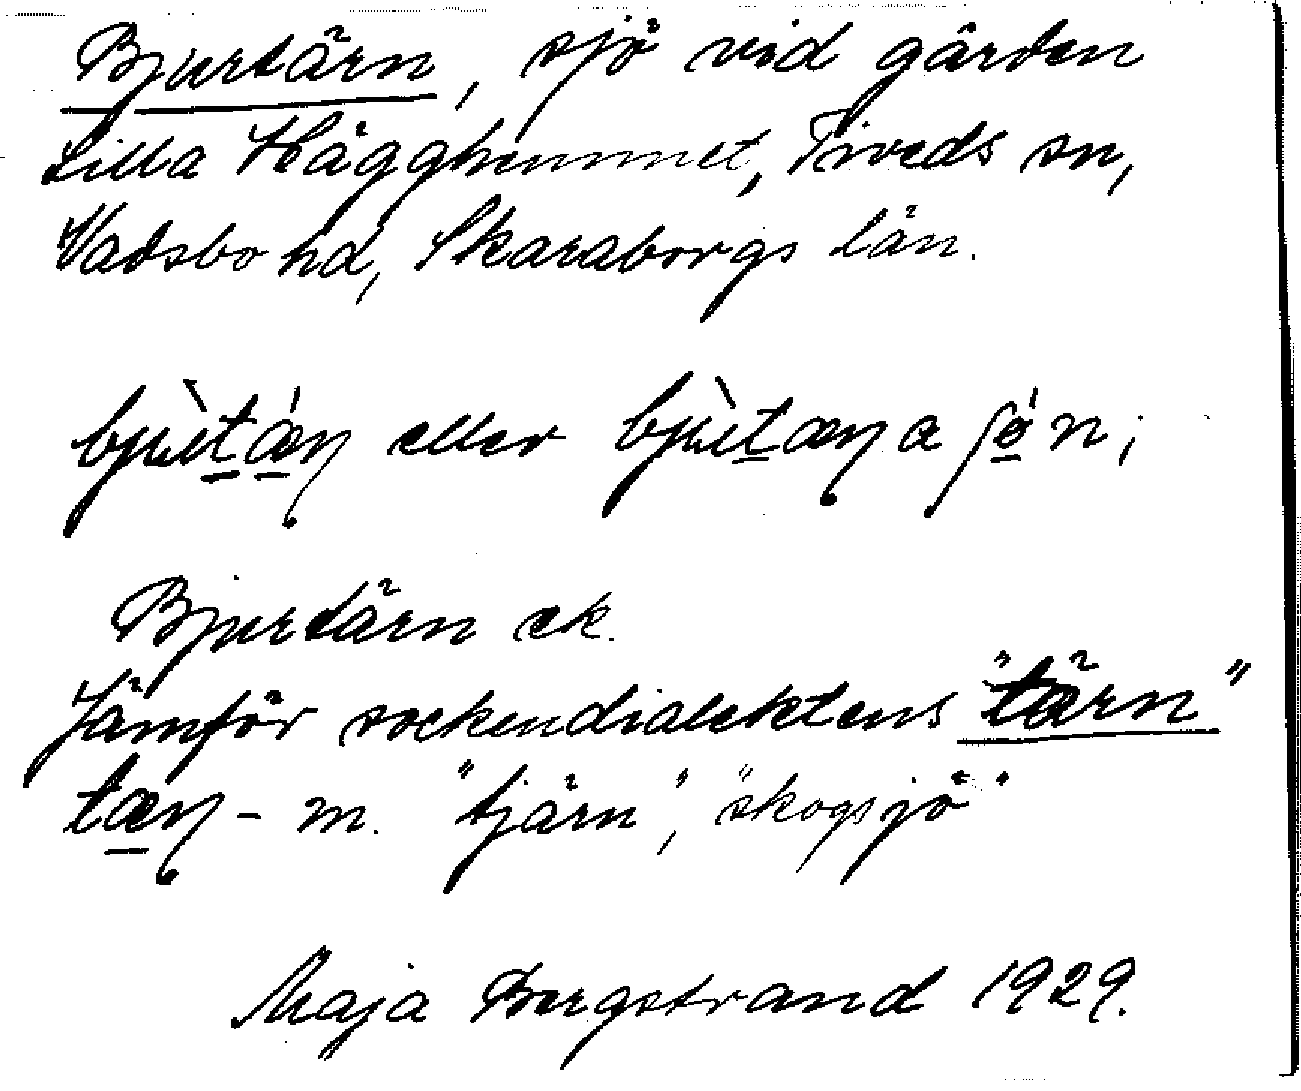 Bjurtärn, sjö vid gården
Lilla Hägghummet, Tiveds sn,
Vadsbo hd, Skaraborgs län.
eller
Bjurtärn ek.
Jämför sockendialektens "tärn"
m. "tjärn", "skogsjö"
Maja Bergstrand 1929.